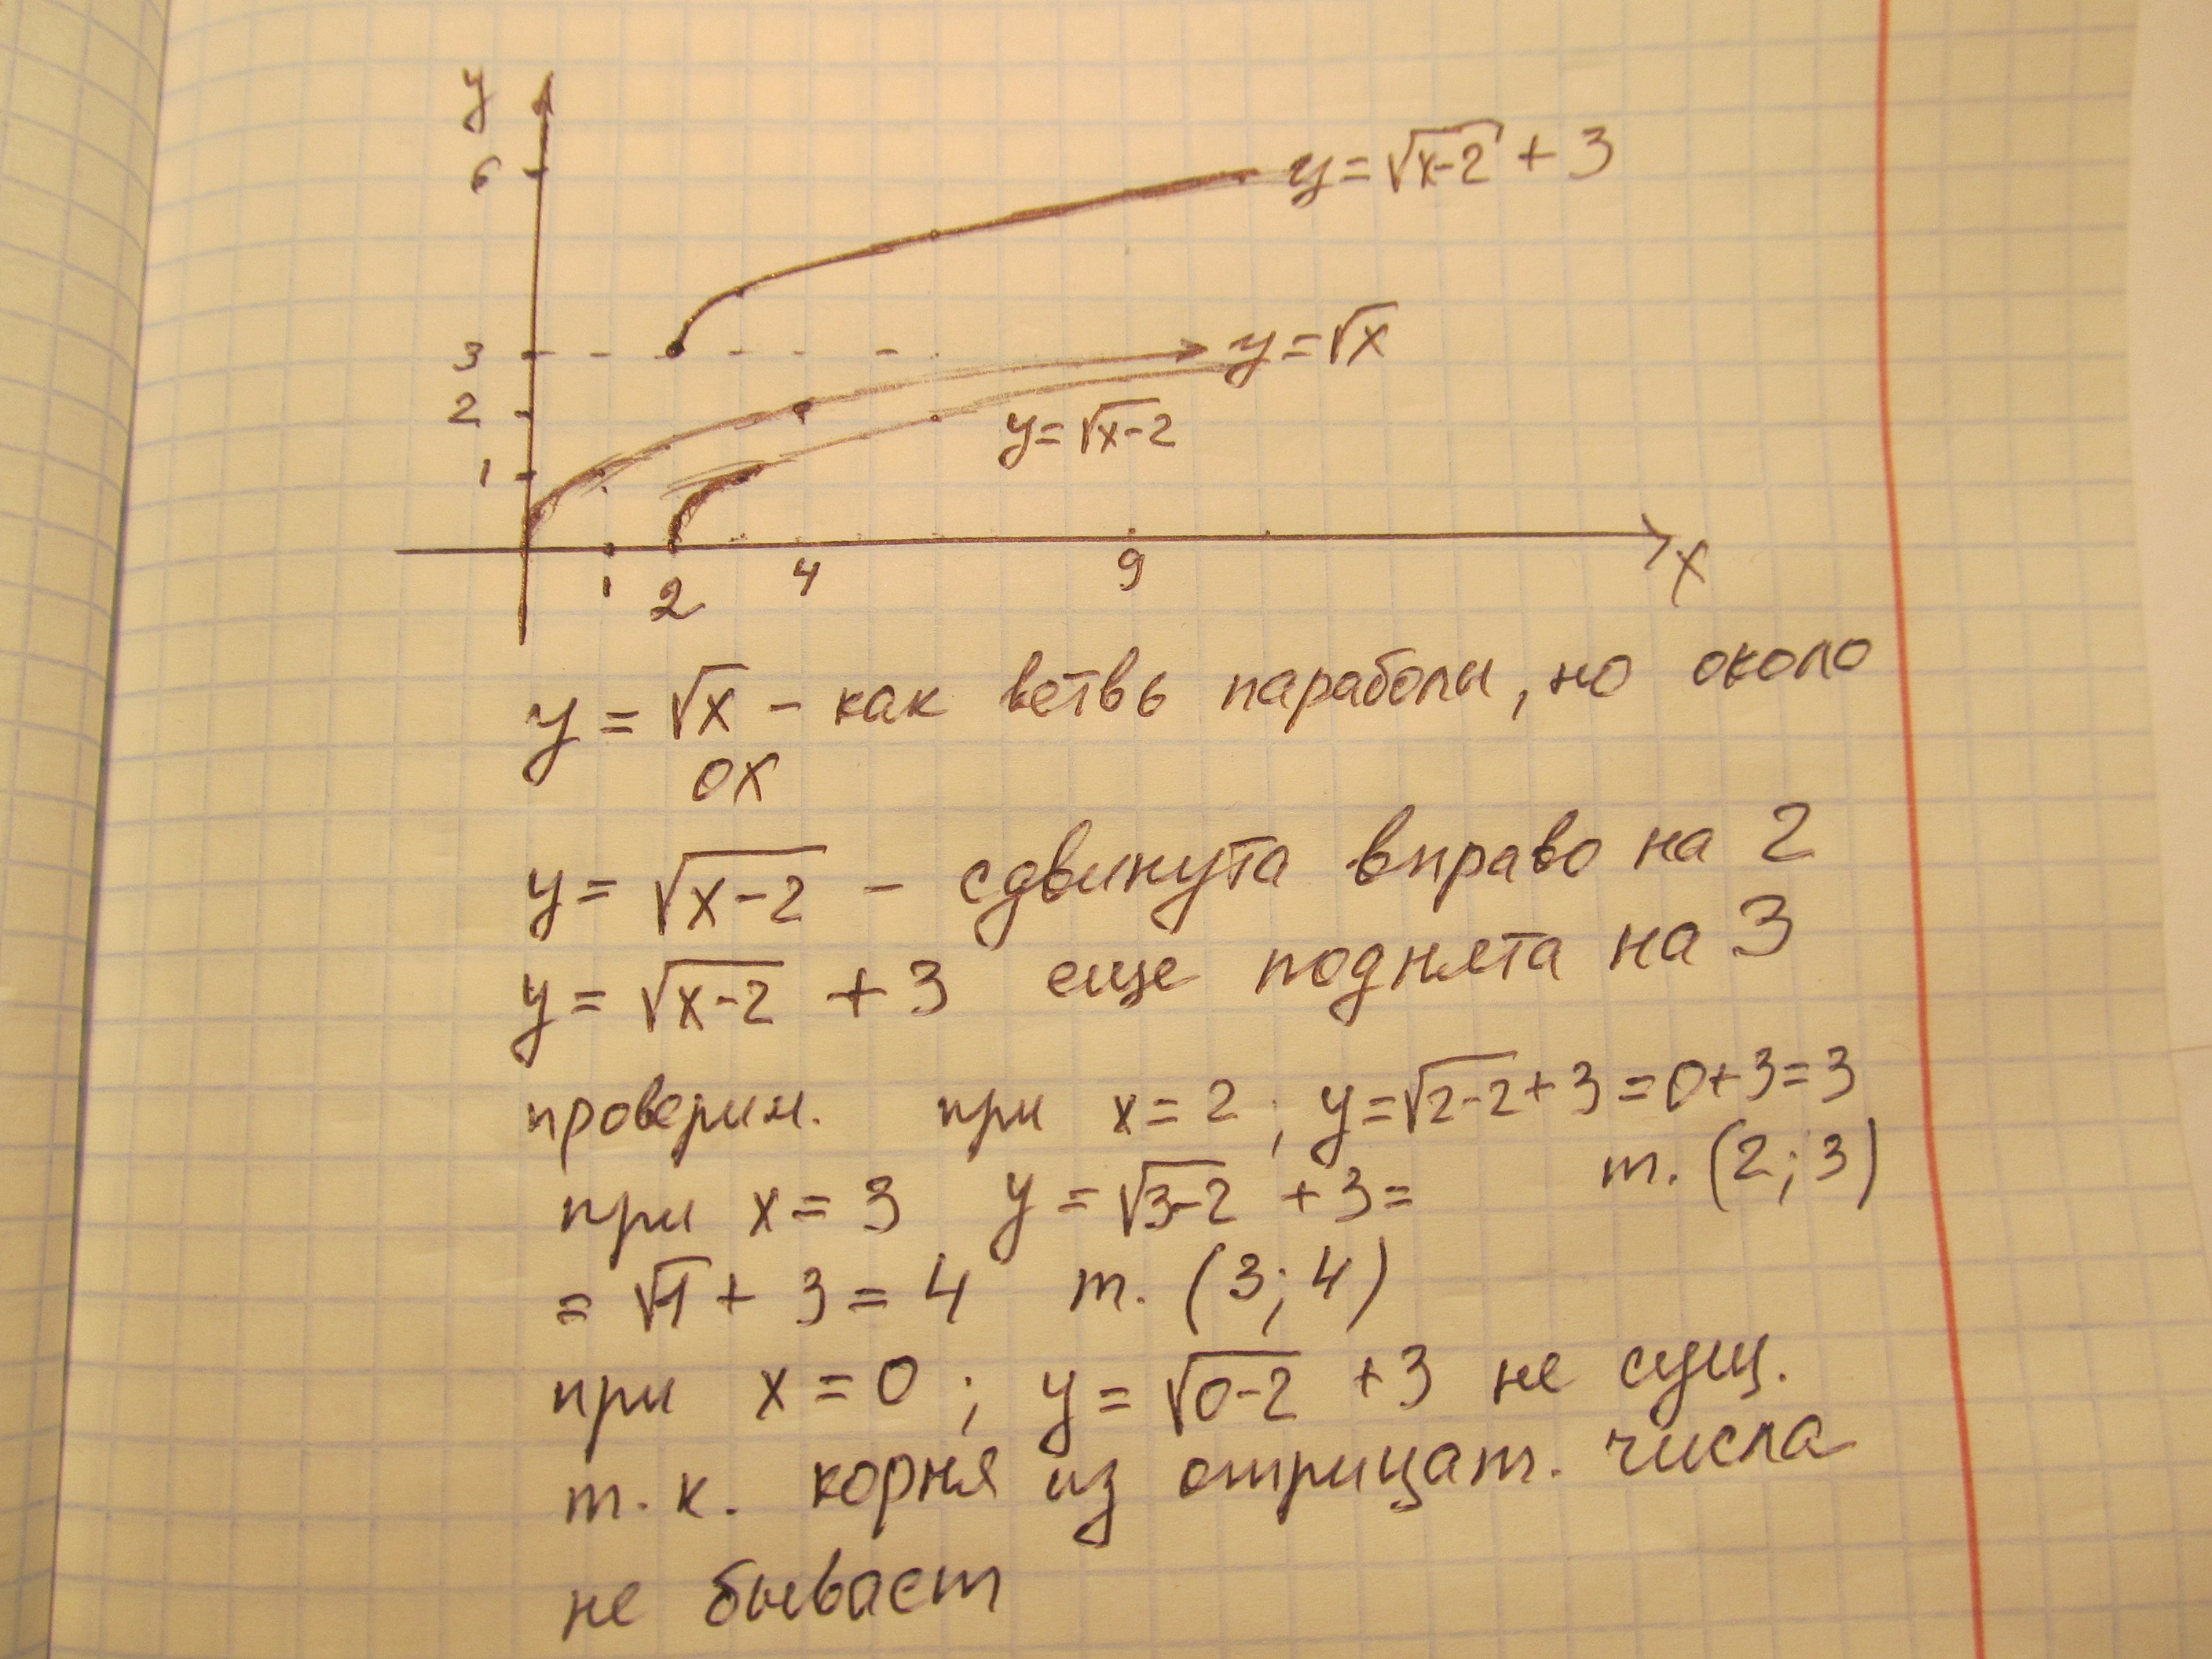 y
6
y = √x-2 + 3
3
y = √x
2
y = √x-2
1
1
2
4
9
x
y = √x - как ветвь параболы, но около
OX
y = √x-2 - сдвинута вправо на 2
y = √x-2 + 3 еще поднята на 3
проверим. при x = 2 ; y = √2-2 + 3 = 0 + 3 = 3
т. (2; 3)
при x = 3 y = √3-2 + 3 =
= √1 + 3 = 4 т. (3; 4)
при x = 0 ; y = √0-2 + 3 не сущ.
т. к. корня из отрицат. числа
не бывает